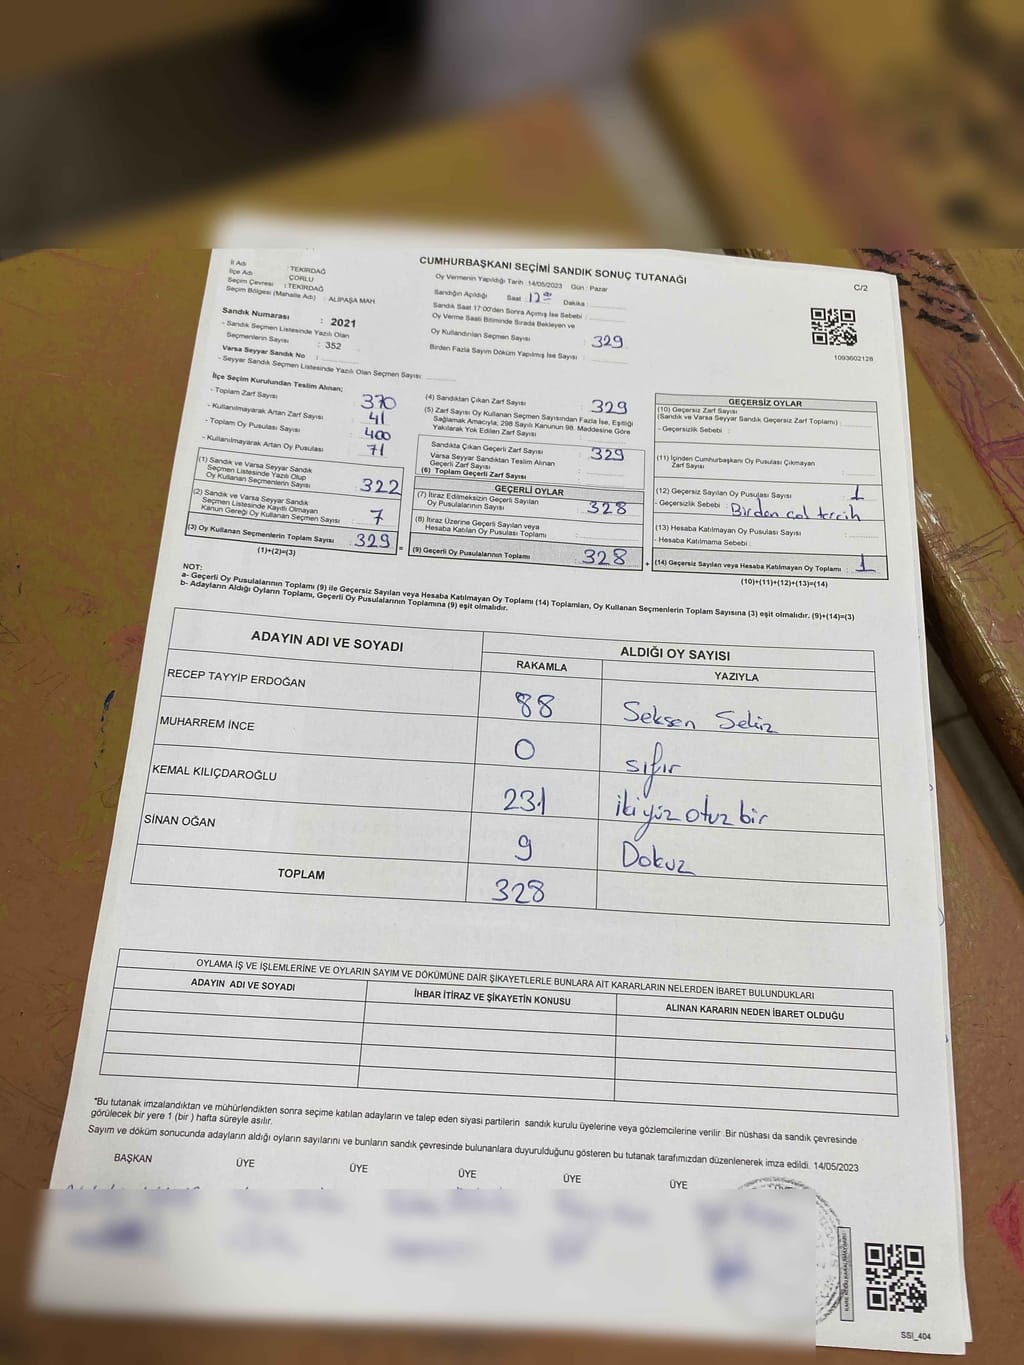 CUMHURBAŞKANI SEÇİMİ SANDIK SONUÇ TUTANAĞI
C/2
İl Adı : TEKİRDAĞ
İlçe Adı ÇORLU
Seçim Çevresi : TEKİRDAĞ
Seçim Bölgesi (Mahalle Adı) : ALİPAŞA MAH.
Sandık Numarası : 2021
- Sandık Seçmen Listesinde Yazılı Olan
Seçmenlerin Sayısı : 352
Varsa Seyyar Sandık No :
- Seyyar Sandık Seçmen Listesinde Yazılı Olan Seçmen Sayısı:
Oy Vermenin Yapıldığı Tarih :14/05/2023 Gün : Pazar
Sandığın Açıldığı Saat : 17 00 Dakika :
Sandık Saat 17:00'den Sonra Açımış İse Sebebi :
Oy Verme Saati Bitiminde Sırada Bekleyen ve
Oy Kullandırılan Seçmen Sayısı : 329
Birden Fazla Sayım Döküm Yapılmış İse Sayısı :
1093602128
İlçe Seçim Kurulundan Teslim Alınan;
- Toplam Zarf Sayısı : 370
- Kullanılmayarak Artan Zarf Sayısı : 41
- Toplam Oy Pusulası Sayısı : 400
- Kullanılmayarak Artan Oy Pusulası : 71
(1) Sandık ve Varsa Seyyar Sandık
Seçmen Listesinde Yazılı Olup
Oy Kullanan Seçmenlerin Sayısı : 322
(2) Sandık ve Varsa Seyyar Sandık
Seçmen Listesinde Kayıtlı Olmayan
Kanun Gereği Oy Kullanan Seçmen Sayısı : 7
(3) Oy Kullanan Seçmenlerin Toplam Sayısı : 329
(1)+(2)=(3)
(4) Sandıktan Çıkan Zarf Sayısı : 329
(5) Zarf Sayısı Oy Kullanan Seçmen Sayısından Fazla İse, Eşitliği
Sağlamak Amacıyla; 298 Sayılı Kanunun 98. Maddesine Göre
Yakılarak Yok Edilen Zarf Sayısı :
Sandıkta Çıkan Geçerli Zarf Sayısı : 329
Varsa Seyyar Sandıktan Teslim Alınan
Geçerli Zarf Sayısı :
(6) Toplam Geçerli Zarf Sayısı :
GEÇERLİ OYLAR
(7) İtiraz Edilmeksizin Geçerli Sayılan
Oy Pusulalarının Sayısı : 328
(8) İtiraz Üzerine Geçerli Sayılan veya
Hesaba Katılan Oy Pusulası Toplamı :
= (9) Geçerli Oy Pusulalarının Toplamı : 328 +
GEÇERSİZ OYLAR
(10) Geçersiz Zarf Sayısı
(Sandık ve Varsa Seyyar Sandık Geçersiz Zarf Toplamı) :
- Geçersizlik Sebebi :
(11) İçinden Cumhurbaşkanı Oy Pusulası Çıkmayan
Zarf Sayısı :
(12) Geçersiz Sayılan Oy Pusulası Sayısı : 1
- Geçersizlik Sebebi : Birden çol tercih
(13) Hesaba Katılmayan Oy Pusulası Sayısı :
- Hesaba Katılmama Sebebi :
(14) Geçersiz Sayılan veya Hesaba Katılmayan Oy Toplamı : 1
(10)+(11)+(12)+(13)=(14)
NOT:
a- Geçerli Oy Pusulalarının Toplamı (9) ile Geçersiz Sayılan veya Hesaba Katılmayan Oy Toplamı (14) Toplamları, Oy Kullanan Seçmenlerin Toplam Sayısına (3) eşit olmalıdır. (9)+(14)=(3)
b- Adayların Aldığı Oyların Toplamı, Geçerli Oy Pusulalarının Toplamına (9) eşit olmalıdır.
ADAYIN ADI VE SOYADI
ALDIĞI OY SAYISI
RAKAMLA YAZIYLA
RECEP TAYYİP ERDOĞAN 88 Seksen Sekiz
MUHARREM İNCE 0 sıfır
KEMAL KILIÇDAROĞLU 231 ikiyüz otuz bir
SİNAN OĞAN 9 Dokuz
TOPLAM 328
OYLAMA İŞ VE İŞLEMLERİNE VE OYLARIN SAYIM VE DÖKÜMÜNE DAİR ŞİKAYETLERLE BUNLARA AİT KARARLARIN NELERDEN İBARET BULUNDUKLARI
ADAYIN ADI VE SOYADI İHBAR İTİRAZ VE ŞİKAYETİN KONUSU ALINAN KARARIN NEDEN İBARET OLDUĞU
*Bu tutanak imzalandıktan ve mühürlendikten sonra seçime katılan adayların ve talep eden siyasi partilerin sandık kurulu üyelerine veya gözlemcilerine verilir. Bir nüshası da sandık çevresinde
görülecek bir yere 1 (bir ) hafta süreyle asılır.
Sayım ve döküm sonucunda adayların aldığı oyların sayılarını ve bunların sandık çevresinde bulunanlara duyurulduğunu gösteren bu tutanak tarafımızdan düzenlenerek imza edildi. 14/05/2023
BAŞKAN ÜYE ÜYE ÜYE ÜYE ÜYE
SSI_404